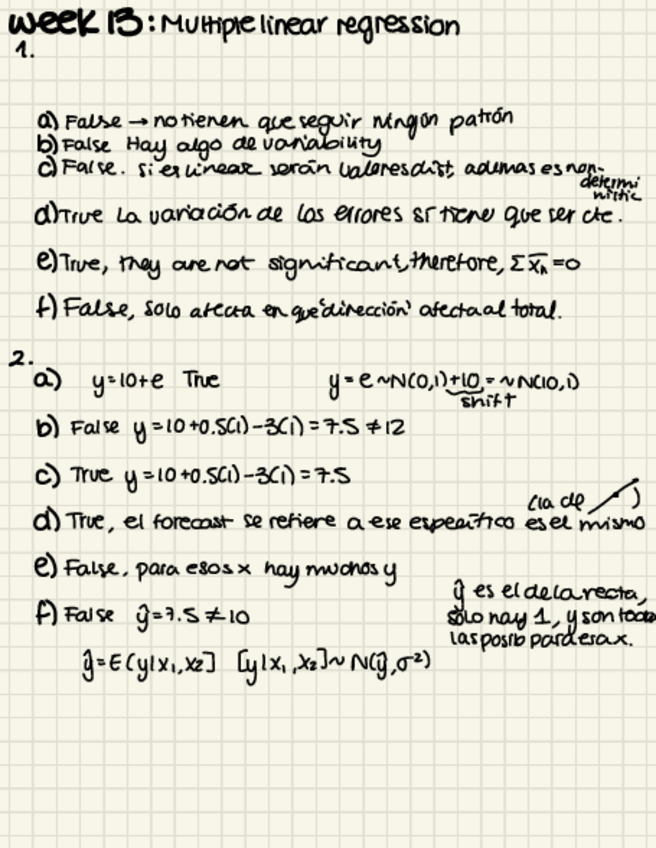 week 13: Multiple linear regression
1.
a) False → no tienen que seguir ningún patrón
b) False Hay algo de variability
c) False. si es linear serán valores dist, ademas es non-
determi
nistic
d) True La variación de los errores sí tiene que ser cte.
e) True, they are not significant, therefore, Σx̄ₙ=0
f) False, solo afecta en que 'dirección' afecta al total.
2.
a) y=10+e True y=e~N(0,1)+10=~N(10,1)
shift
b) False y=10+0.5(1)-3(1)=7.5≠12
c) True y=10+0.5(1)-3(1)=7.5
(la de )
d) True, el forecast se refiere a ese específico es el mismo
e) False, para esos x hay muchos y
ŷ es el de la recta,
f) False ŷ=7.5≠10 solo hay 1, y son todas
las posib para esa x.
ŷ=E(y|x₁,x₂] [y|x₁,x₂]~N(ŷ,σ²)